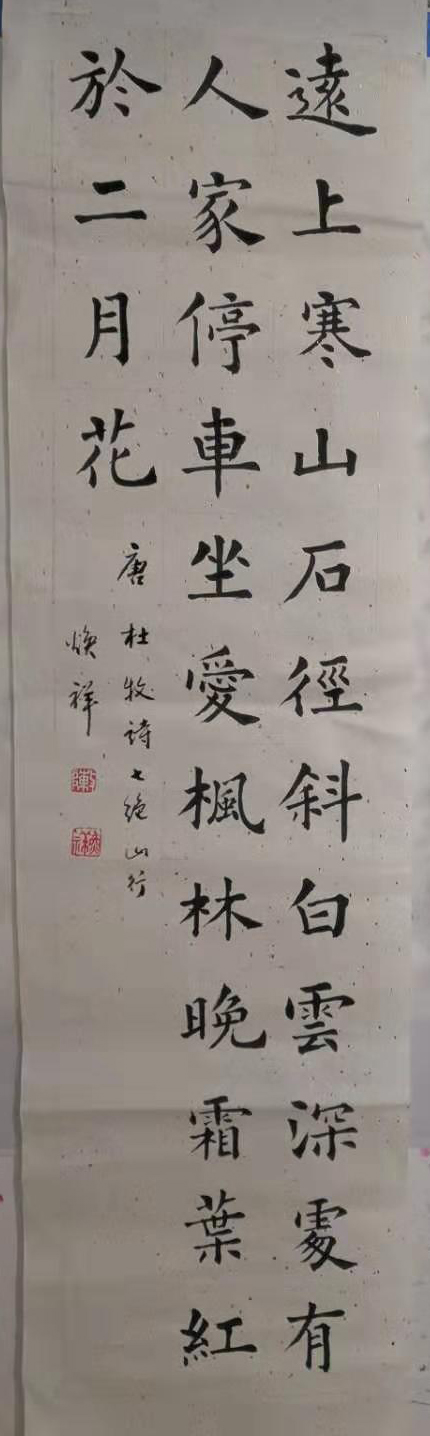 遠上寒山石徑斜白雲深處有
人家停車坐愛楓林晚霜葉紅
於二月花
唐杜牧詩七絕山行
煥祥